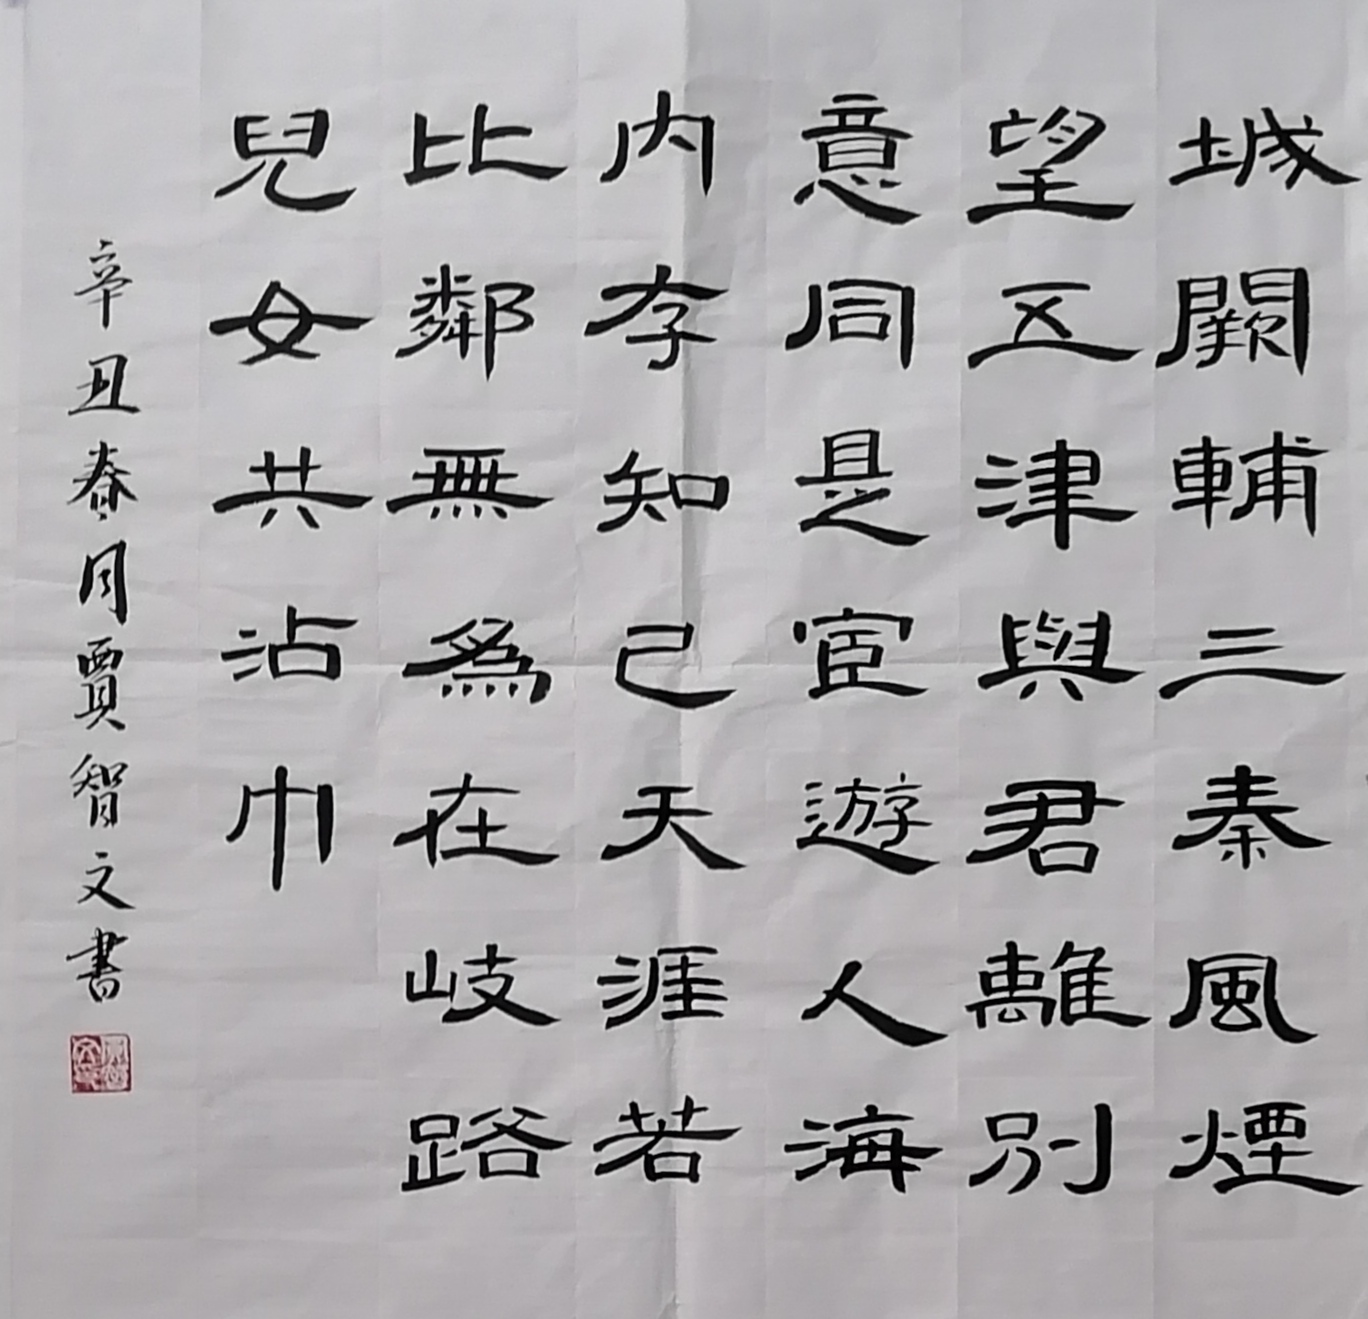 城闕輔三秦風煙
望五津與君離別
意同是宦遊人海
内存知己天涯若
比鄰無為在岐路
兒女共沾巾
辛丑春月賈智文書